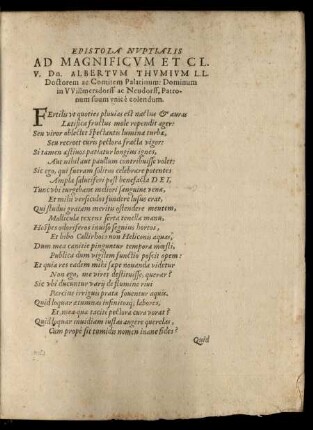 EPISTOLA NVPTIALIS
AD MAGNIFICVM ET CL.
V. Dn. ALBERTVM THVMIVM I.L.
Doctorem ac Comitem Palatinum: Dominum
in VVillmersdorff ac Neudorff, Patro-
num suum vnicè colendum.
FErtilis vt quoties pluuias est nactus & auras
Lætifica fructus mole rependit ager:
Seu vigor ablectet spectantis lumina turbæ,
Seu recreet curis pectora fracta vigor:
Si tamen æstiuos patiatur longius ignes,
Aut nihil aut paullum contribuisse volet:
Sic ego, qui fueram solitus celebrare potentis
Ampla salutiferi post benefacta DEI,
Tunc vbi turgebant meliori sanguine venæ,
Et mihi versiculos fundere lusus erat.
Qui studui gratam meritis ostendere mentem,
Multicula texens serta tenella manu,
Hospes
Et bibo Callirhoës non Heliconis aquas,
Dum mea canitie pinguntur tempora mœsti,
Publica dum vigilem functio poscit opem:
Et quia res eadem mihi sæpe nouanda videtur
Non ego, me vires destituisse, querar?
Sic vbi ducuntur varij de flumine riui
Parcius irriguis prata fouentur aquis.
Quid loquar ætumnas infinitosq; labores,
Et mea quæ tacitè pectora cura vorat?
Quid loquar inuidiam iustas angere querelas,
Cum propè sit tumidis nomen inane fides?
Quid